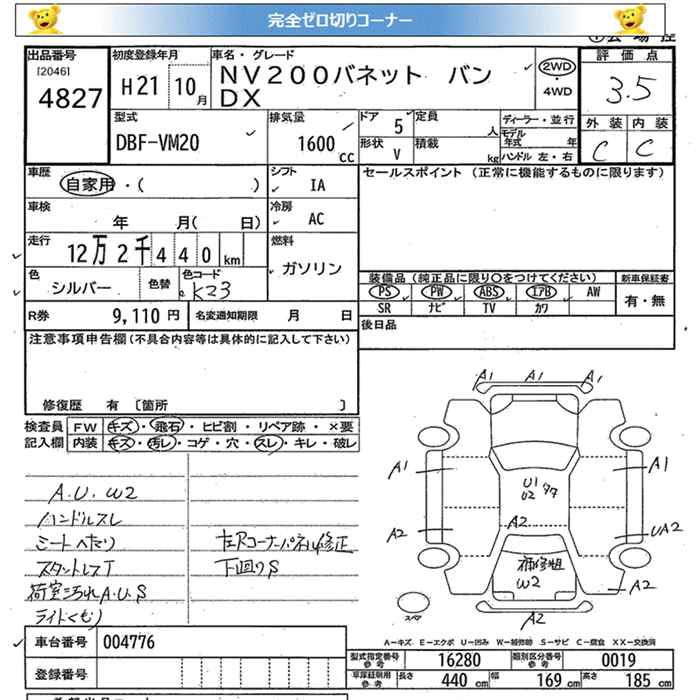 完全ゼロ切りコーナー
出品番号 初度登録年月 車名・グレード 評価点
[2046]
4827 H21 10月 NV200バネット バン DX 2WD ・ 4WD 3.5
型式 排気量 ドア 定員 ディーラー・並行 外装 内装
DBF-VM20 1600cc 5 人 モデル年式 年 C C
形状 積載
V kg ハンドル 左・右
車歴 シフト セールスポイント (正常に機能するものに限ります)
自家用・( ) IA
車検 冷房
年 月( 日) AC
走行 燃料
12万2千440km ガソリン
色 色替 色コード 装備品 (純正品に限り〇をつけてください) 新車保証書
シルバー K23 PS PW ABS エアB AW 有・無
SR ナビ TV カワ
R券 9,110円 名変通知期限 月 日 後日品
注意事項申告欄(不具合内容等は具体的に記入して下さい)
修復歴 有 [箇所 ]
検査員 FW キズ・飛石・ヒビ割・リペア跡・×要
記入欄 内装 キズ・汚レ・コゲ・穴・スレ・キレ・破レ
A.U.W2
ハンドルスレ
ミートへたり
スタントレスT
荷室汚れA.U.S
ライトくもり
左Rコーナーパネル修正
下廻りS
A1 A1 A1
A1 A1
U1
U2
A2 A2 UA2
補修粗
W2 A2
A2
スペア
A-キズ E-エクボ U-凹み W-補修跡 S-サビ C-腐食 XX-交換済
車台番号 004776
登録番号
型式指定番号 参考 16280 類別区分番号 参考 0019
長さ 440cm 幅 169cm 高さ 185cm